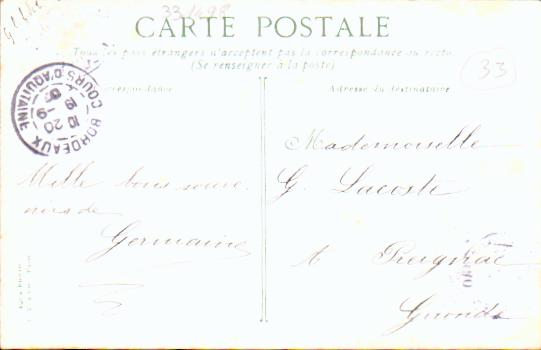 33/498
CARTE POSTALE
Tous les pays étrangers n'acceptent pas la correspondance au recto
(Se renseigner à la poste)
33
Correspondance
Adresse du destinataire
BORDEAUX
COURS D'AQUITAINE
10 20
-9
Mademoiselle
G. Lacoste
à Preignac
Gironde
Mille bons souve-
nirs de
Germaine